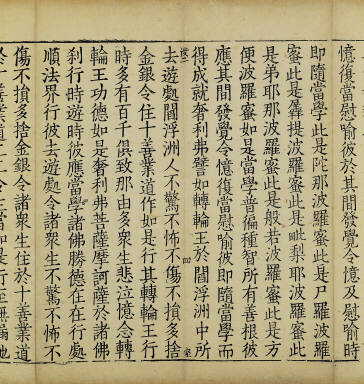 憶復當慰喻於其問發覺令憶及慰喻時
即隨當學此是陀那波羅蜜此是尸羅波羅
蜜此是羼提波羅蜜此是毗梨耶波羅蜜此
是弟耶那波羅蜜此是般若波羅蜜此是方
便波羅蜜如是當學普徧種智所有善根彼
應其問發覺令憶復當慰喻彼即隨當學而
得成就奢利弗譬如轉輪王於閻浮洲中所
去遊處閻浮洲人不驚不怖不傷不損多捨
金銀令住十善業道作如是行其轉輪王行
時多有百千俱致那由多衆生悲泣憶念轉
輪王功德如是奢利弗菩薩摩訶薩於諸佛
刹行時遊時彼應當學諸佛勝德在在行處
順法界行彼士遊處令諸衆生不驚不怖不
傷不損多捨金銀令諸衆生住於十善業道